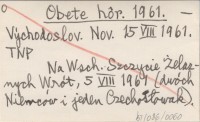 Obete hôr. 1961. –
Východoslov. Nov. 15 VIII 1961.
TNP
Na Wsch. Szczycie Żelaz-
nych Wrót, 5 VIII 1961 (dwóch
Niemców i jeden Czechosłowak).
b/086/0060